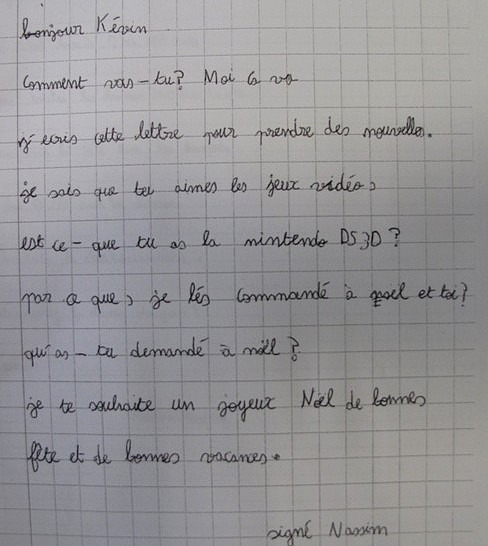 bonjour Kévin
Comment vas-tu? Moi ça va
j'ecris cette lettre pour prendre des nouvelles.
je sais que tu aimes les jeux vidéos
est ce-que tu as la nintendo DS 3D ?
par ce que, je lés commandé à noel et toi?
qu'as-tu demandé à nöel ?
je te souhaite un joyeux Nöel de bonnes
fête et de bonnes vacances.
signé Nassim